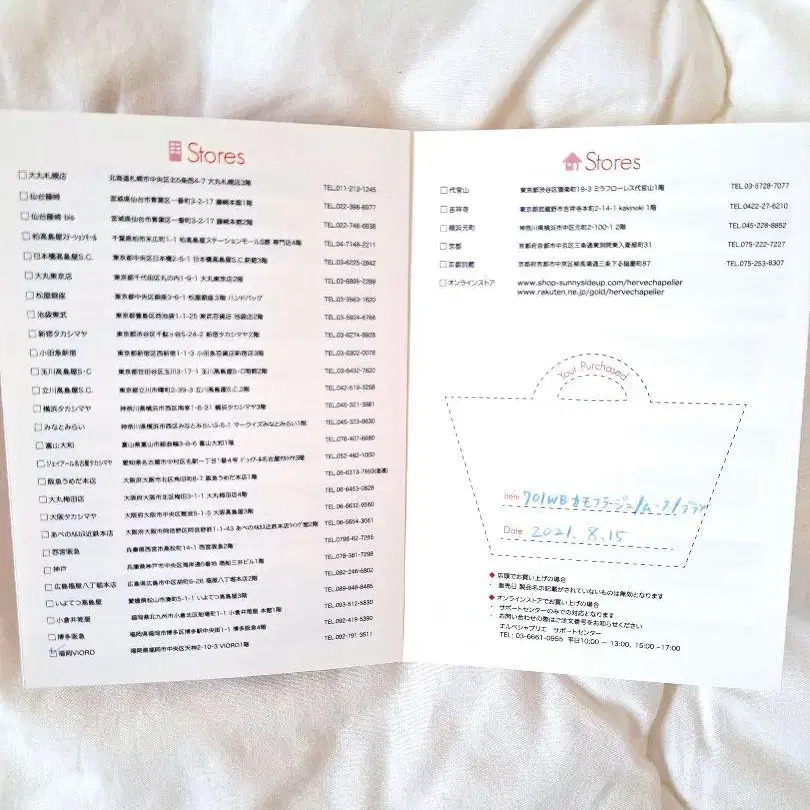 Stores
大丸札幌店 北海道札幌市中央区北5条西4-7 大丸札幌店3階 TEL.011-213-1245
仙台藤崎 宮城県仙台市青葉区一番町3-2-17 藤崎本館1階 TEL.022-398-6977
仙台藤崎 bis 宮城県仙台市青葉区一番町3-2-17 藤崎本館2階 TEL.022-748-6638
柏高島屋ステーションモール 千葉県柏市末広町1-1 柏高島屋ステーションモールS館 専門店4階 TEL.04-7148-2211
日本橋高島屋S.C. 東京都中央区日本橋2-5-1 日本橋高島屋S.C.新館3階 TEL.03-6225-2842
大丸東京店 東京都千代田区丸の内1-9-1 大丸東京店2階 TEL.03-6895-2289
松屋銀座 東京都中央区銀座3-6-1 松屋銀座3階 ハンドバッグ TEL.03-3563-1620
池袋東武 東京都豊島区西池袋1-1-25 東武百貨店 池袋店2階 TEL.03-5924-6766
新宿タカシマヤ 東京都渋谷区千駄ヶ谷5-24-2 新宿タカシマヤ2階 TEL.03-6274-8928
小田急新宿 東京都新宿区西新宿1-1-3 小田急百貨店新宿店3階 TEL.03-6302-0078
玉川高島屋S・C 東京都世田谷区玉川3-17-1 玉川高島屋S・C南館2階 TEL.03-6432-7620
立川高島屋S.C. 東京都立川市曙町2-39-3 立川高島屋S.C.2階 TEL.042-519-3258
横浜タカシマヤ 神奈川県横浜市西区南幸1-6-31 横浜タカシマヤ3階 TEL.045-321-3881
みなとみらい 神奈川県横浜市西区みなとみらい3-5-1 マークイズみなとみらい1階 TEL.045-323-9630
富山大和 富山県富山市総曲輪3-8-6 富山大和1階 TEL.076-407-6680
ジェイアール名古屋タカシマヤ 愛知県名古屋市中村区名駅一丁目1番4号 ジェイアール名古屋タカシマヤ3階 TEL.052-462-1000
阪急うめだ本店 大阪府大阪市北区角田町8-7 阪急うめだ本店1階 TEL.06-6313-7569(直通)
大丸梅田店 大阪府大阪市北区梅田3-1-1 大丸梅田店4階 TEL.06-6453-0828
大阪タカシマヤ 大阪府大阪市中央区難波5-1-5 大阪高島屋3階 TEL.06-6632-9560
あべのハルカス近鉄本店 大阪府大阪市阿倍野区阿倍野筋1-1-43 あべのハルカス近鉄本店ウイング館2階 TEL.06-6654-3061
西宮阪急 兵庫県西宮市高松町14-1 西宮阪急2階 TEL.0798-62-7265
神戸 兵庫県神戸市中央区海岸通6番地 商船三井ビル1階 TEL.078-381-7298
広島福屋八丁堀本店 広島県広島市中区胡町6-26 福屋八丁堀本店2階 TEL.082-246-6802
いよてつ高島屋 愛媛県松山市湊町5-1-1 いよてつ高島屋3階 TEL.089-948-8485
小倉井筒屋 福岡県北九州市小倉北区船場町1-1 小倉井筒屋 本館1階 TEL.093-512-5830
博多阪急 福岡県福岡市博多区博多駅中央街1-1 博多阪急4階 TEL.092-419-5390
福岡VIORO 福岡県福岡市中央区天神2-10-3 VIORO1階 TEL.092-791-3511
Stores
代官山 東京都渋谷区猿楽町19-3 ミラフローレス代官山1階 TEL.03-5728-7077
吉祥寺 東京都武蔵野市吉祥寺本町2-14-1 kakinoki 1階 TEL.0422-27-6210
横浜元町 神奈川県横浜市中区元町2-100-1 2階 TEL.045-228-8852
京都 京都府京都市中京区三条通東洞院東入菱屋町31 TEL.075-222-7227
京都別館 京都府京都市中京区柳馬場通三条下る槌屋町87 TEL.075-253-6307
オンラインストア www.shop-sunnysideup.com/hervechapelier
www.rakuten.ne.jp/gold/hervechapelier
Your Purchased
Item 701WB カモフラージュ/ムース/ブラン
Date 2021.8.15
◆店頭でお買い上げの場合
・ 販売日 製品名の記載がされていないものは無効となります
◆オンラインストアでお買い上げの場合
・ サポートセンターのみでの対応となります
・ お問い合わせの際はご注文番号をお知らせください
エルベシャプリエ サポートセンター
TEL : 03-6661-0955 平日10:00 ~ 13:00、15:00 -17:00